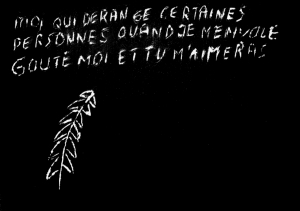 MOI QUI DERANGE CERTAINES
PERSONNES QUAND JE MENVOLE
GOUTE MOI ET TU M'AIMERAS